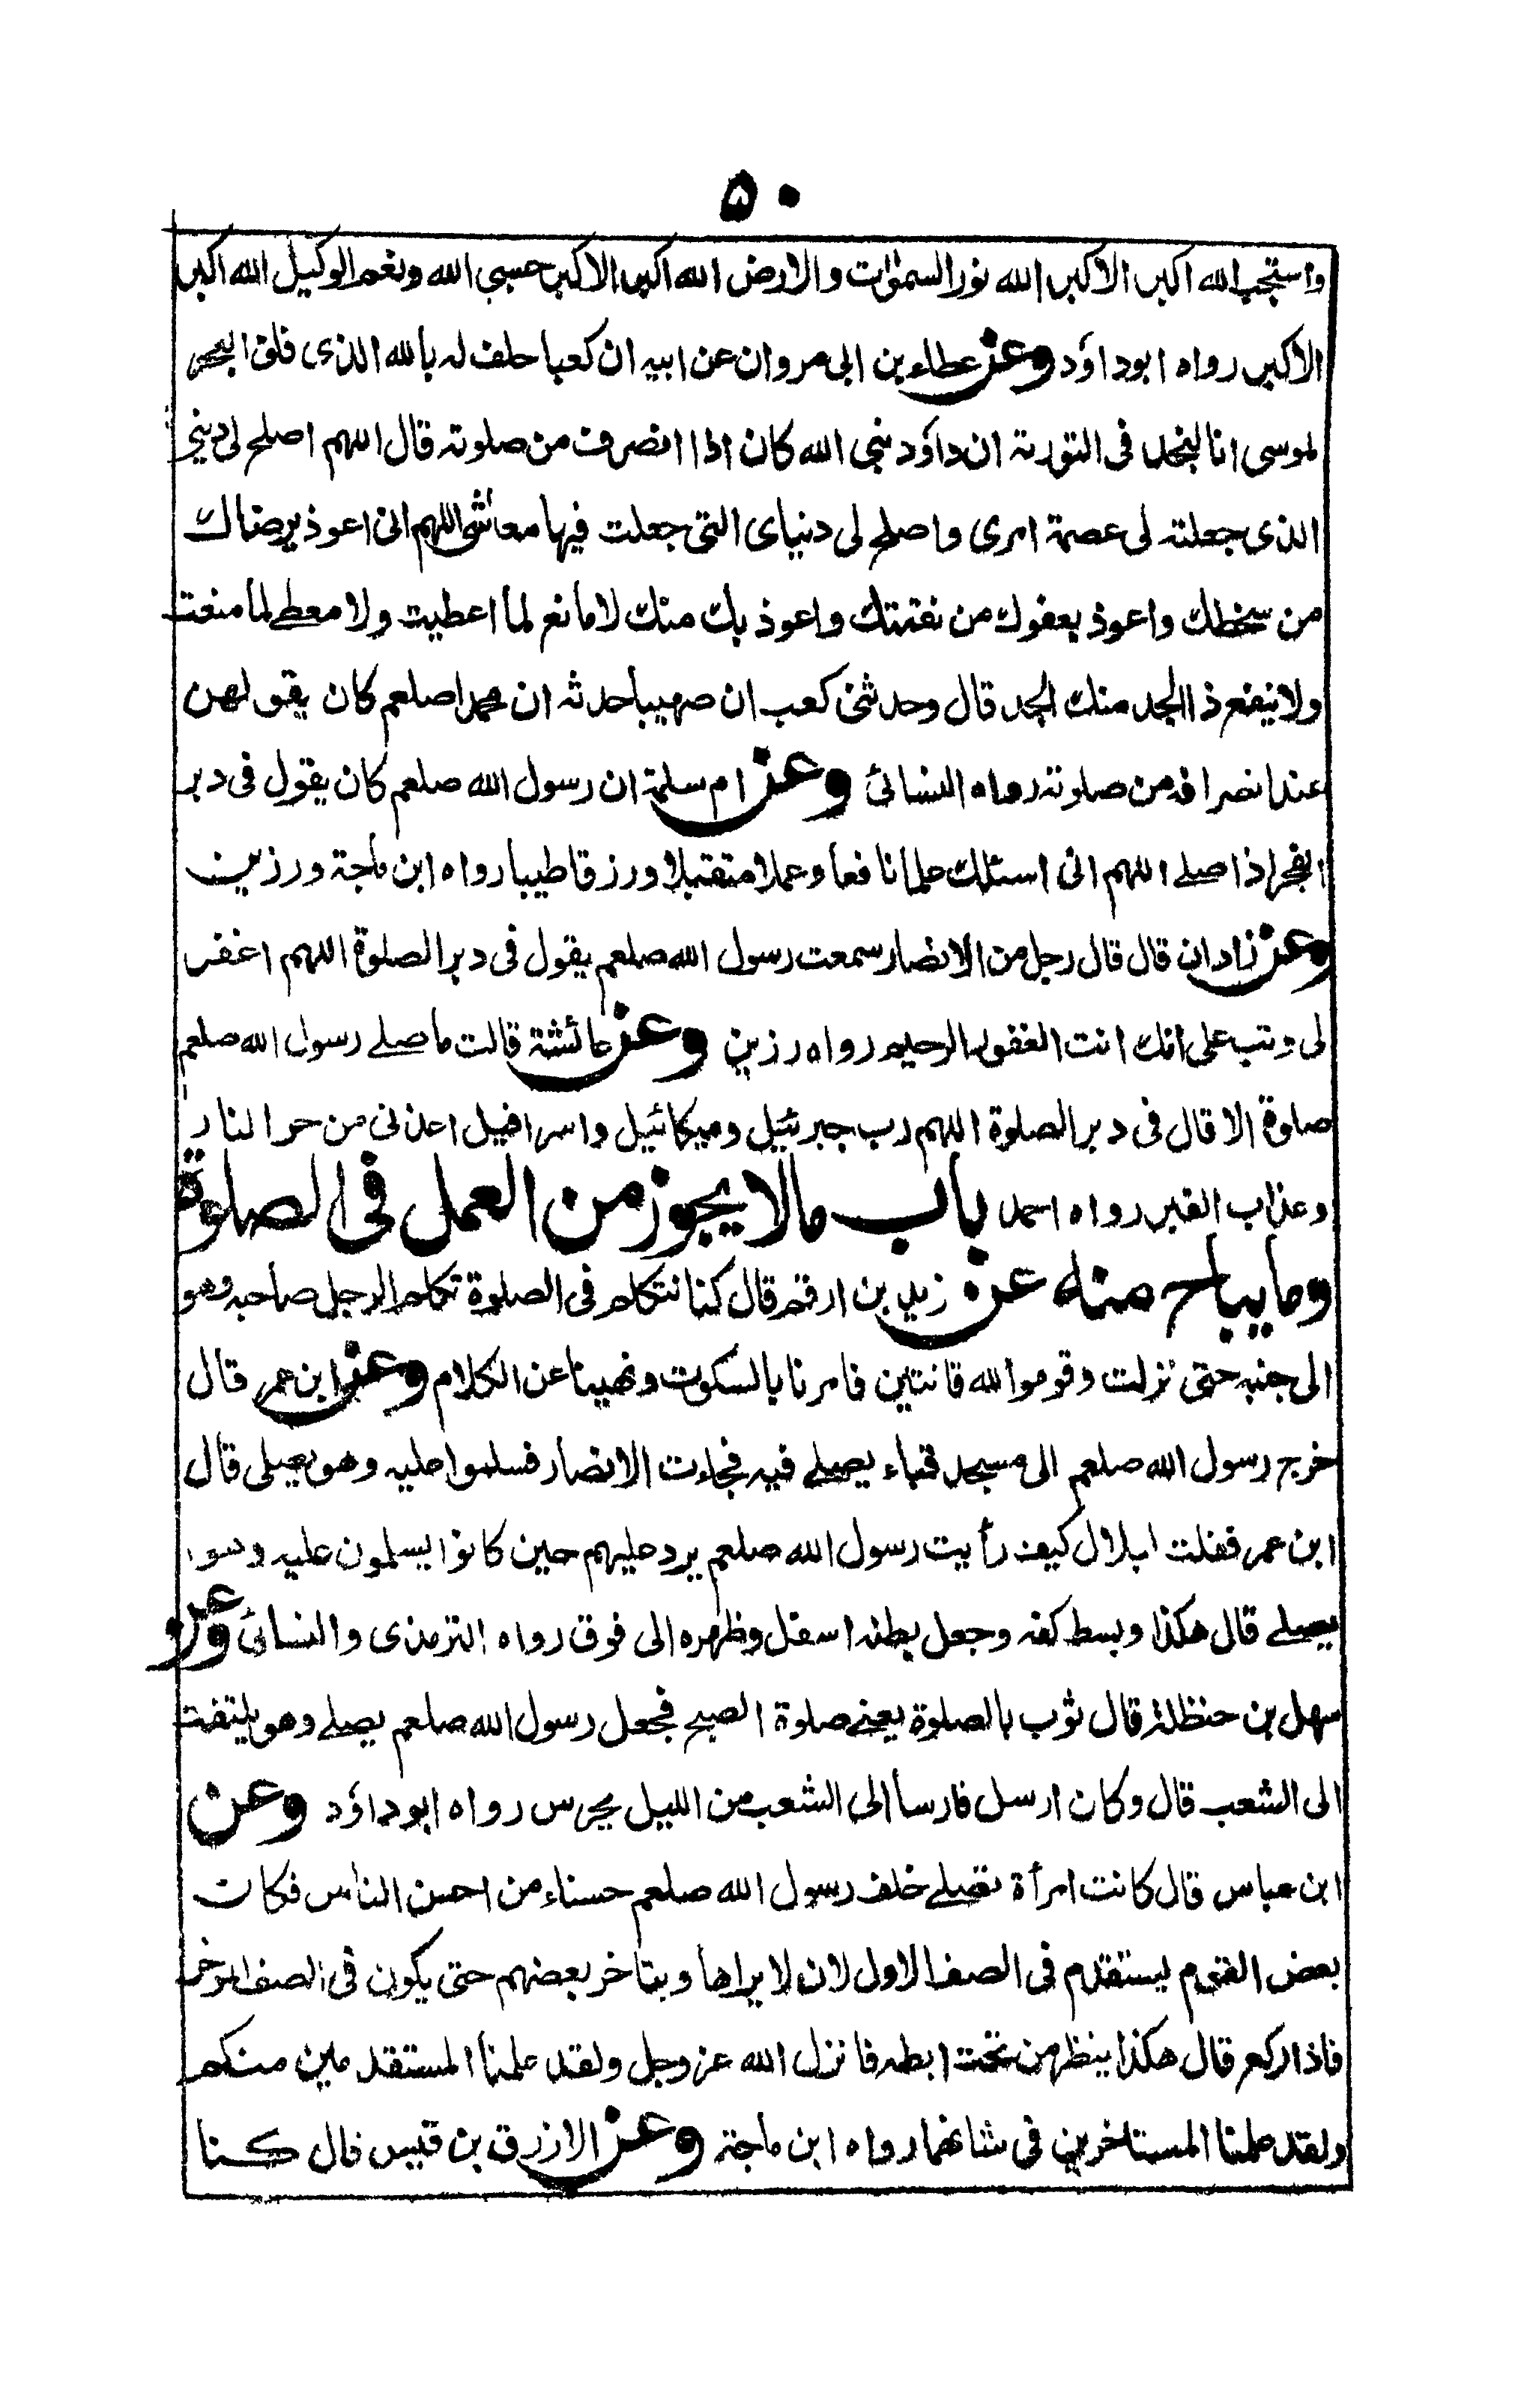 ۵۰
واستجب الله اكبر الاكبر الله نور السموات والارض الله اكبر الاكبر حسبي الله ونعم الوكيل الله اكبر
الاكبر رواه ابوداؤد وعن عطاء بن ابى مروان عن ابيه ان كعبا حلف له بالله الذى فلق البحر
لموسى انا لنجد فى التورىة ان داؤد نبى الله كان اذا انصرف من صلوته قال اللهم اصلح لى دينى
الذى جعلته لى عصمة امرى واصلح لى دنياى التى جعلت فيها معاشى اللهم انى اعوذ برضاك
من سخطك واعوذ بعفوك من نقمتك واعوذ بك منك لا مانع لما اعطيت ولا معطے لما منعت
ولا ينفع ذا الجد منك الجد قال وحدثنى كعب ان صهيبا حدثه ان محمدا صلعم كان يقولهن
عند انصرافه من صلوته رواه النسائى وعن ام سلمة ان رسول الله صلعم كان يقول فى دبر
الفجر اذا صلے اللهم انى اسئلك علما نافعا وعملا متقبلا ورزقا طيبا رواه ابن ماجة ورزين
وعن زادان قال قال رجل من الانصار سمعت رسول الله صلعم يقول فى دبر الصلوة اللهم اغفر
لى وتب على انك انت الغفور الرحيم رواه رزين وعن عائشة قالت ما صلے رسول الله صلعم
صلوة الا قال فى دبر الصلوة اللهم رب جبرئيل وميكائيل واسرافيل اعذنى من حر النار
وعذاب القبر رواه احمد باب مالا يجوز من العمل فى الصلوة
وما يباح منه عن زيد بن ارقم قال كنا نتكلم فى الصلوة تكلم الرجل صاحبه وهو
الى جنبه حتى نزلت وقوموا لله قانتين فامرنا بالسكوت ونهينا عن الكلام وعن ابن عمر قال
خرج رسول الله صلعم الى مسجد قباء يصلے فيه فجاءت الانصار فسلموا عليه وهو يصلى قال
ابن عمر فقلت لبلال كيف رأيت رسول الله صلعم يرد عليهم حين كانوا يسلمون عليه وهو
يصلے قال هكذا وبسط كفه وجعل بطنه اسفل وظهره الى فوق رواه الترمذى والنسائى وعن
سهل بن حنظلة قال ثوب بالصلوة يعنے صلوة الصبح فجعل رسول الله صلعم يصلے وهو يلتفت
الى الشعب قال وكان ارسل فارسا الى الشعب من الليل يحرس رواه ابوداؤد وعن
ابن عباس قال كانت امرأة تصلے خلف رسول الله صلعم حسناء من احسن الناس فكان
بعض القوم يستقدم فى الصف الاول لان لا يراها ويتاخر بعضهم حتى يكون فى الصف المؤخر
فاذا ركع قال هكذا ينظر من تحت ابطه فانزل الله عز وجل ولقد علمنا المستقدمين منكم
ولقد علمنا المستاخرين فى شانها رواه ابن ماجة وعن الازرق بن قيس قال كنا